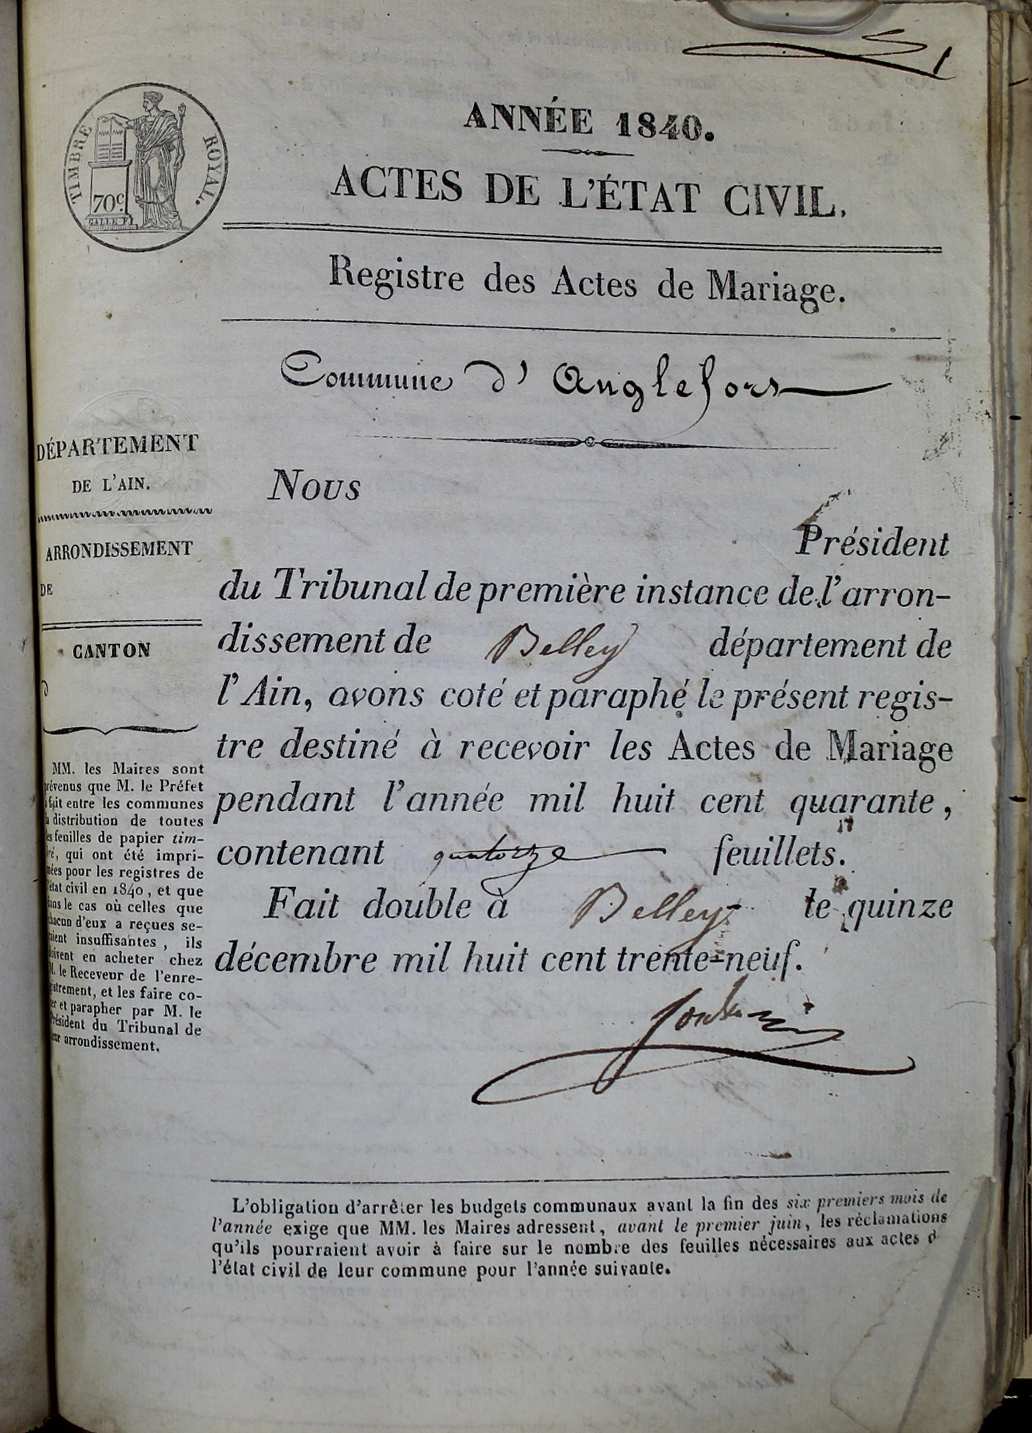 1
ANNÉE 1840.
TIMBRE ROYAL.
70c.
ACTES DE L'ÉTAT CIVIL.
Registre des Actes de Mariage.
Commune d'Anglefors
DÉPARTEMENT
DE L'AIN.
ARRONDISSEMENT
DE
CANTON
D
MM. les Maires sont
prévenus que M. le Préfet
a fait entre les communes
la distribution de toutes
les feuilles de papier tim-
bré, qui ont été impri-
mées pour les registres de
l'état civil en 1840, et que
dans le cas où celles que
chacun d'eux a reçues se-
raient insuffisantes, ils
doivent en acheter chez
M. le Receveur de l'enre-
gistrement, et les faire co-
ter et parapher par M. le
Président du Tribunal de
leur arrondissement.
Nous
Président
du Tribunal de première instance de l'arron-
dissement de Belley département de
l'Ain, avons coté et paraphé le présent regis-
tre destiné à recevoir les Actes de Mariage
pendant l'année mil huit cent quarante,
contenant quatorze feuillets.
Fait double à Belley le quinze
décembre mil huit cent trente-neuf.
L'obligation d'arrêter les budgets communaux avant la fin des six premiers mois de
l'année exige que MM. les Maires adressent, avant le premier juin, les réclamations
qu'ils pourraient avoir à faire sur le nombre des feuilles nécessaires aux actes d
l'état civil de leur commune pour l'année suivante.